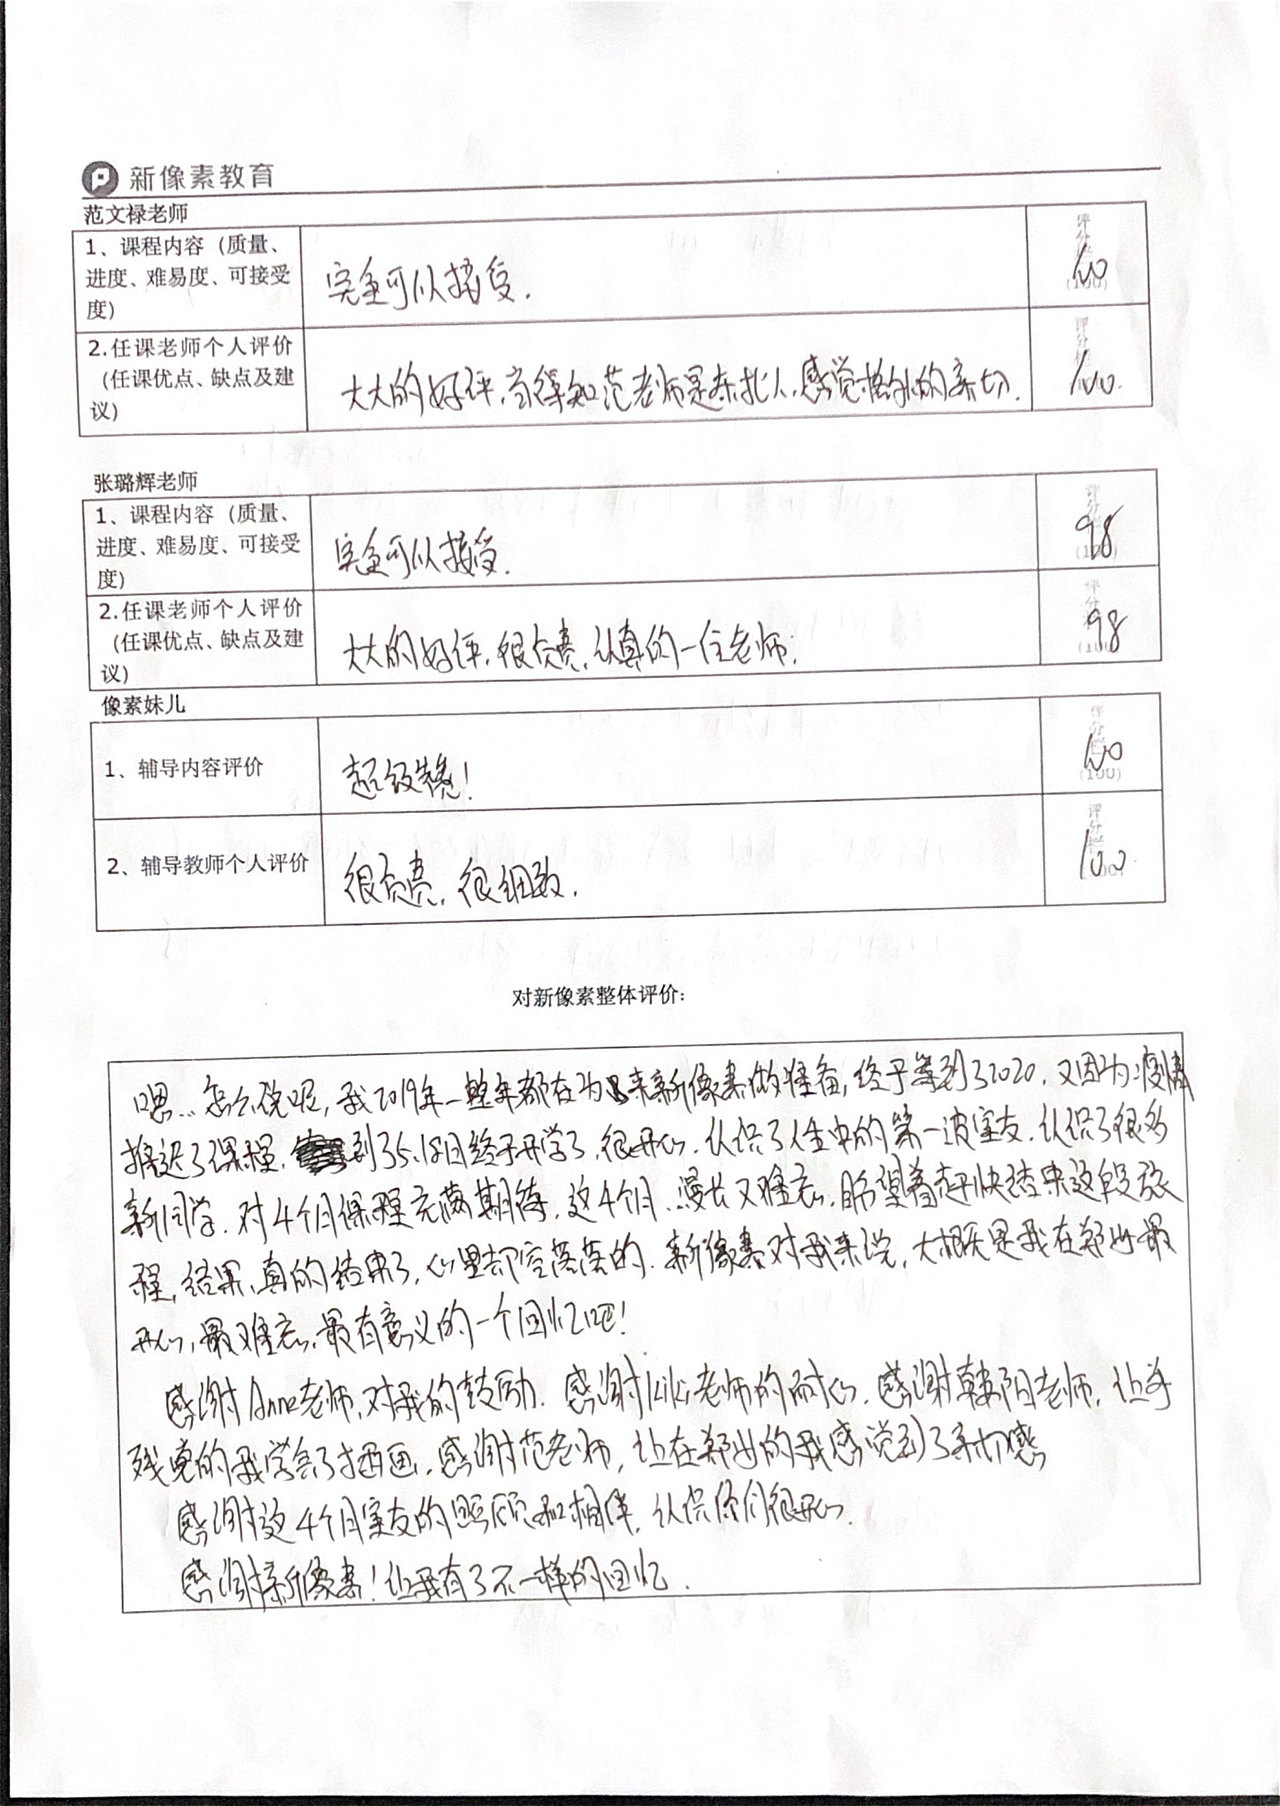 新像素教育
范文禄老师
1、课程内容（质量、
进度、难易度、可接受
度）
完全可以接受.
评分栏
100
(100)
2.任课老师个人评价
（任课优点、缺点及建
议）
大大的好评,当得知范老师是东北人,感觉格外的亲切.
100.
张璐辉老师
1、课程内容（质量、
进度、难易度、可接受
度）
完全可以接受.
98
(100)
2.任课老师个人评价
（任课优点、缺点及建
议）
大大的好评,很负责,认真的一位老师.
98
(100)
像素妹儿
1、辅导内容评价
超级棒!
评分栏
100
(100)
2、辅导教师个人评价
很负责,很细致.
评分栏
100
对新像素整体评价：
嗯...怎么说呢,我2019年一整年都在为来新像素做准备,终于等到了2020,又因为疫情
推迟了课程,到了5.18日终于开学了,很开心,认识了人生中的第一波室友,认识了很多
新同学,对4个月课程充满期待,这4个月,漫长又难忘,盼望着赶快结束这段旅
程,结果,真的结束了,心里却空落落的.新像素对我来说,大概是我在郑州最
开心,最难忘,最有意义的一个回忆吧!
感谢Anne老师,对我的鼓励.感谢kiki老师的耐心.感谢韩阳老师,让手
残党的我学会了插画,感谢范老师,让在郑州的我感觉到了亲切感
感谢这4个月室友的照顾和相伴,认识你们很开心.
感谢新像素!让我有了不一样的回忆.